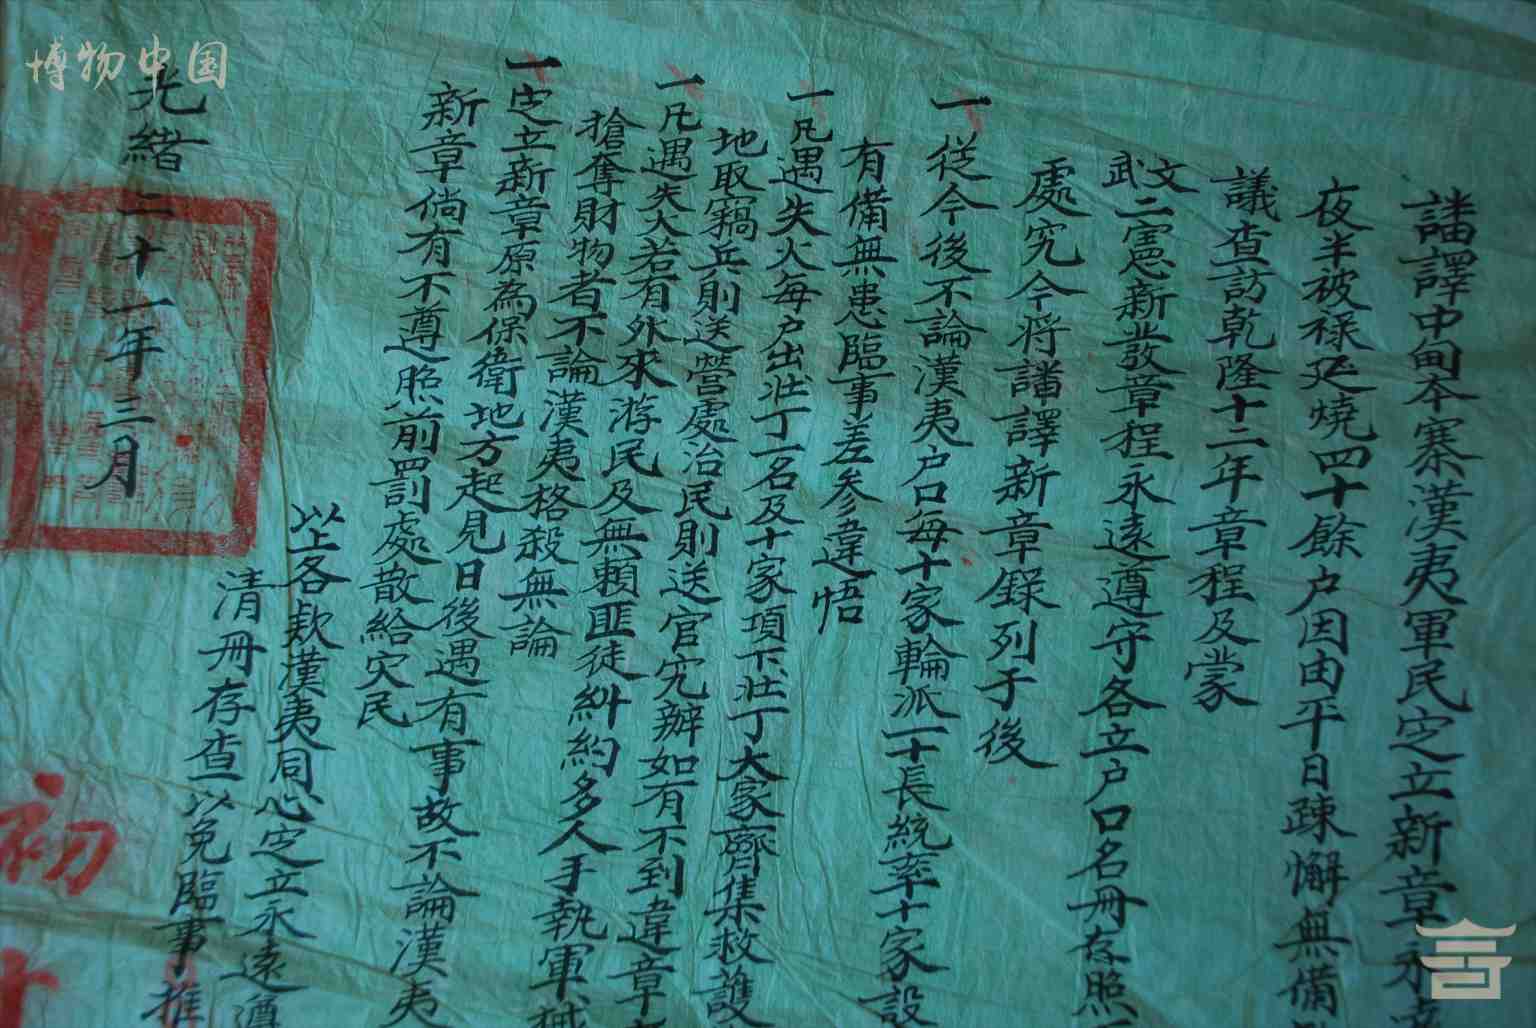 博物中国
譒譯中甸本寨漢夷軍民定立新章永
夜半被祿延燒四十餘户因由平日疎懈無備
議查訪乾隆十二年章程及蒙
文武二憲新發章程永遠遵守各立户口名冊存照
處究今将譒譯新章錄列于後
一從今後不論漢夷户口每十家輪派一十長統率十家設
有備無患臨事差參違悟
一凡遇失火每户出壯丁一名及十家項下壯丁大家齊集救護
地取竊兵則送營處治民則送官究辦如有不到違章
一凡遇失火若有外來游民及無賴匪徒糾約多人手執軍械
搶奪財物者不論漢夷格殺無論
一定立新章原為保衛地方起見日後遇有事故不論漢夷
新章倘有不遵照前罰處散給灾民
以上各欵漢夷同心定立永遠遵
清冊存查以免臨事推
光緒二十一年三月
初